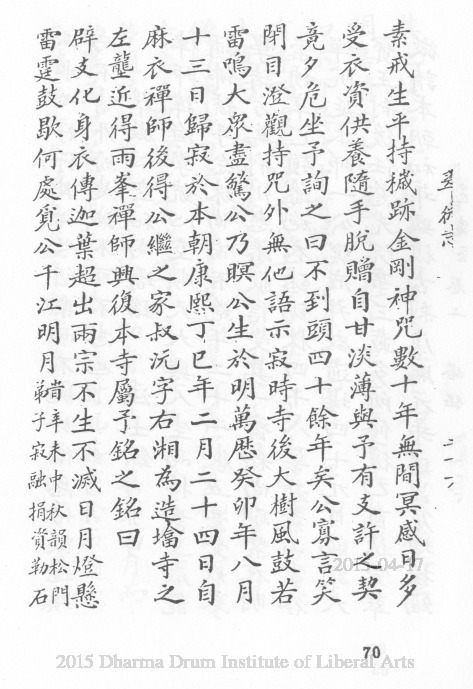 素戒生平持穢跡金剛神咒數十年無間冥感日多
受衣資供養隨手脫贈自甘淡薄與予有支許之契
竟夕危坐予詢之曰不到頭四十餘年矣公寡言笑
閉目澄觀持咒外無他語示寂時寺後大樹風鼓若
雷鳴大衆盡驚公乃瞑公生於明萬厯癸卯年八月
十三日歸寂於本朝康熙丁巳年二月二十四日自
麻衣禪師後得公繼之家叔沅字右湘為造墖寺之
左壟近得雨峯禪師興復本寺屬予銘之銘曰
辟支化身衣傳迦葉超出兩宗不生不滅日月燈懸
雷霆鼓歇何處覓公千江明月
旹辛未中秋韻松門
弟子寂融捐資勒石
2015-04-17
70
2015 Dharma Drum Institute of Liberal Arts